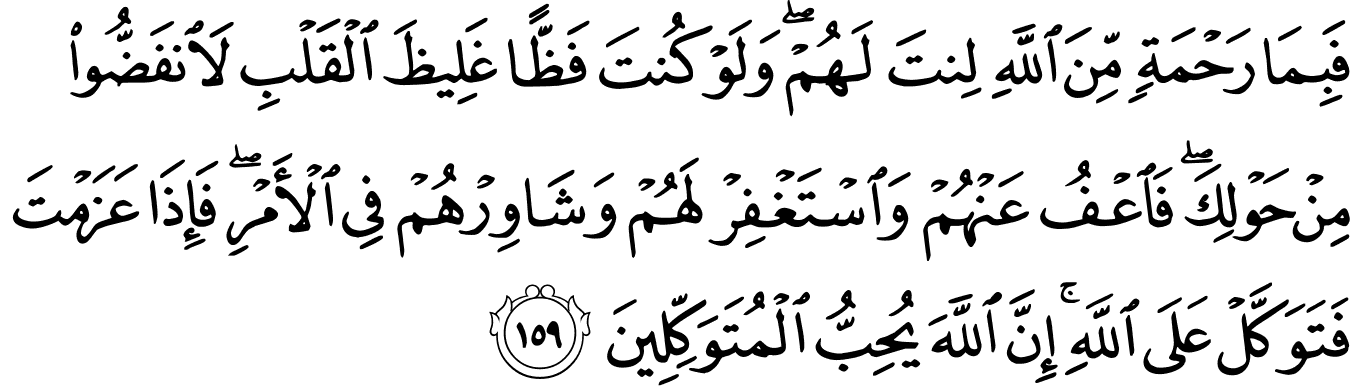 فَبِمَا رَحْمَةٍ مِّنَ ٱللَّهِ لِنتَ لَهُمْ ۖ وَلَوْ كُنتَ فَظًّا غَلِيظَ ٱلْقَلْبِ لَٱنفَضُّوا۟
مِنْ حَوْلِكَ ۖ فَٱعْفُ عَنْهُمْ وَٱسْتَغْفِرْ لَهُمْ وَشَاوِرْهُمْ فِى ٱلْأَمْرِ ۖ فَإِذَا عَزَمْتَ
فَتَوَكَّلْ عَلَى ٱللَّهِ ۚ إِنَّ ٱللَّهَ يُحِبُّ ٱلْمُتَوَكِّلِينَ ١٥٩